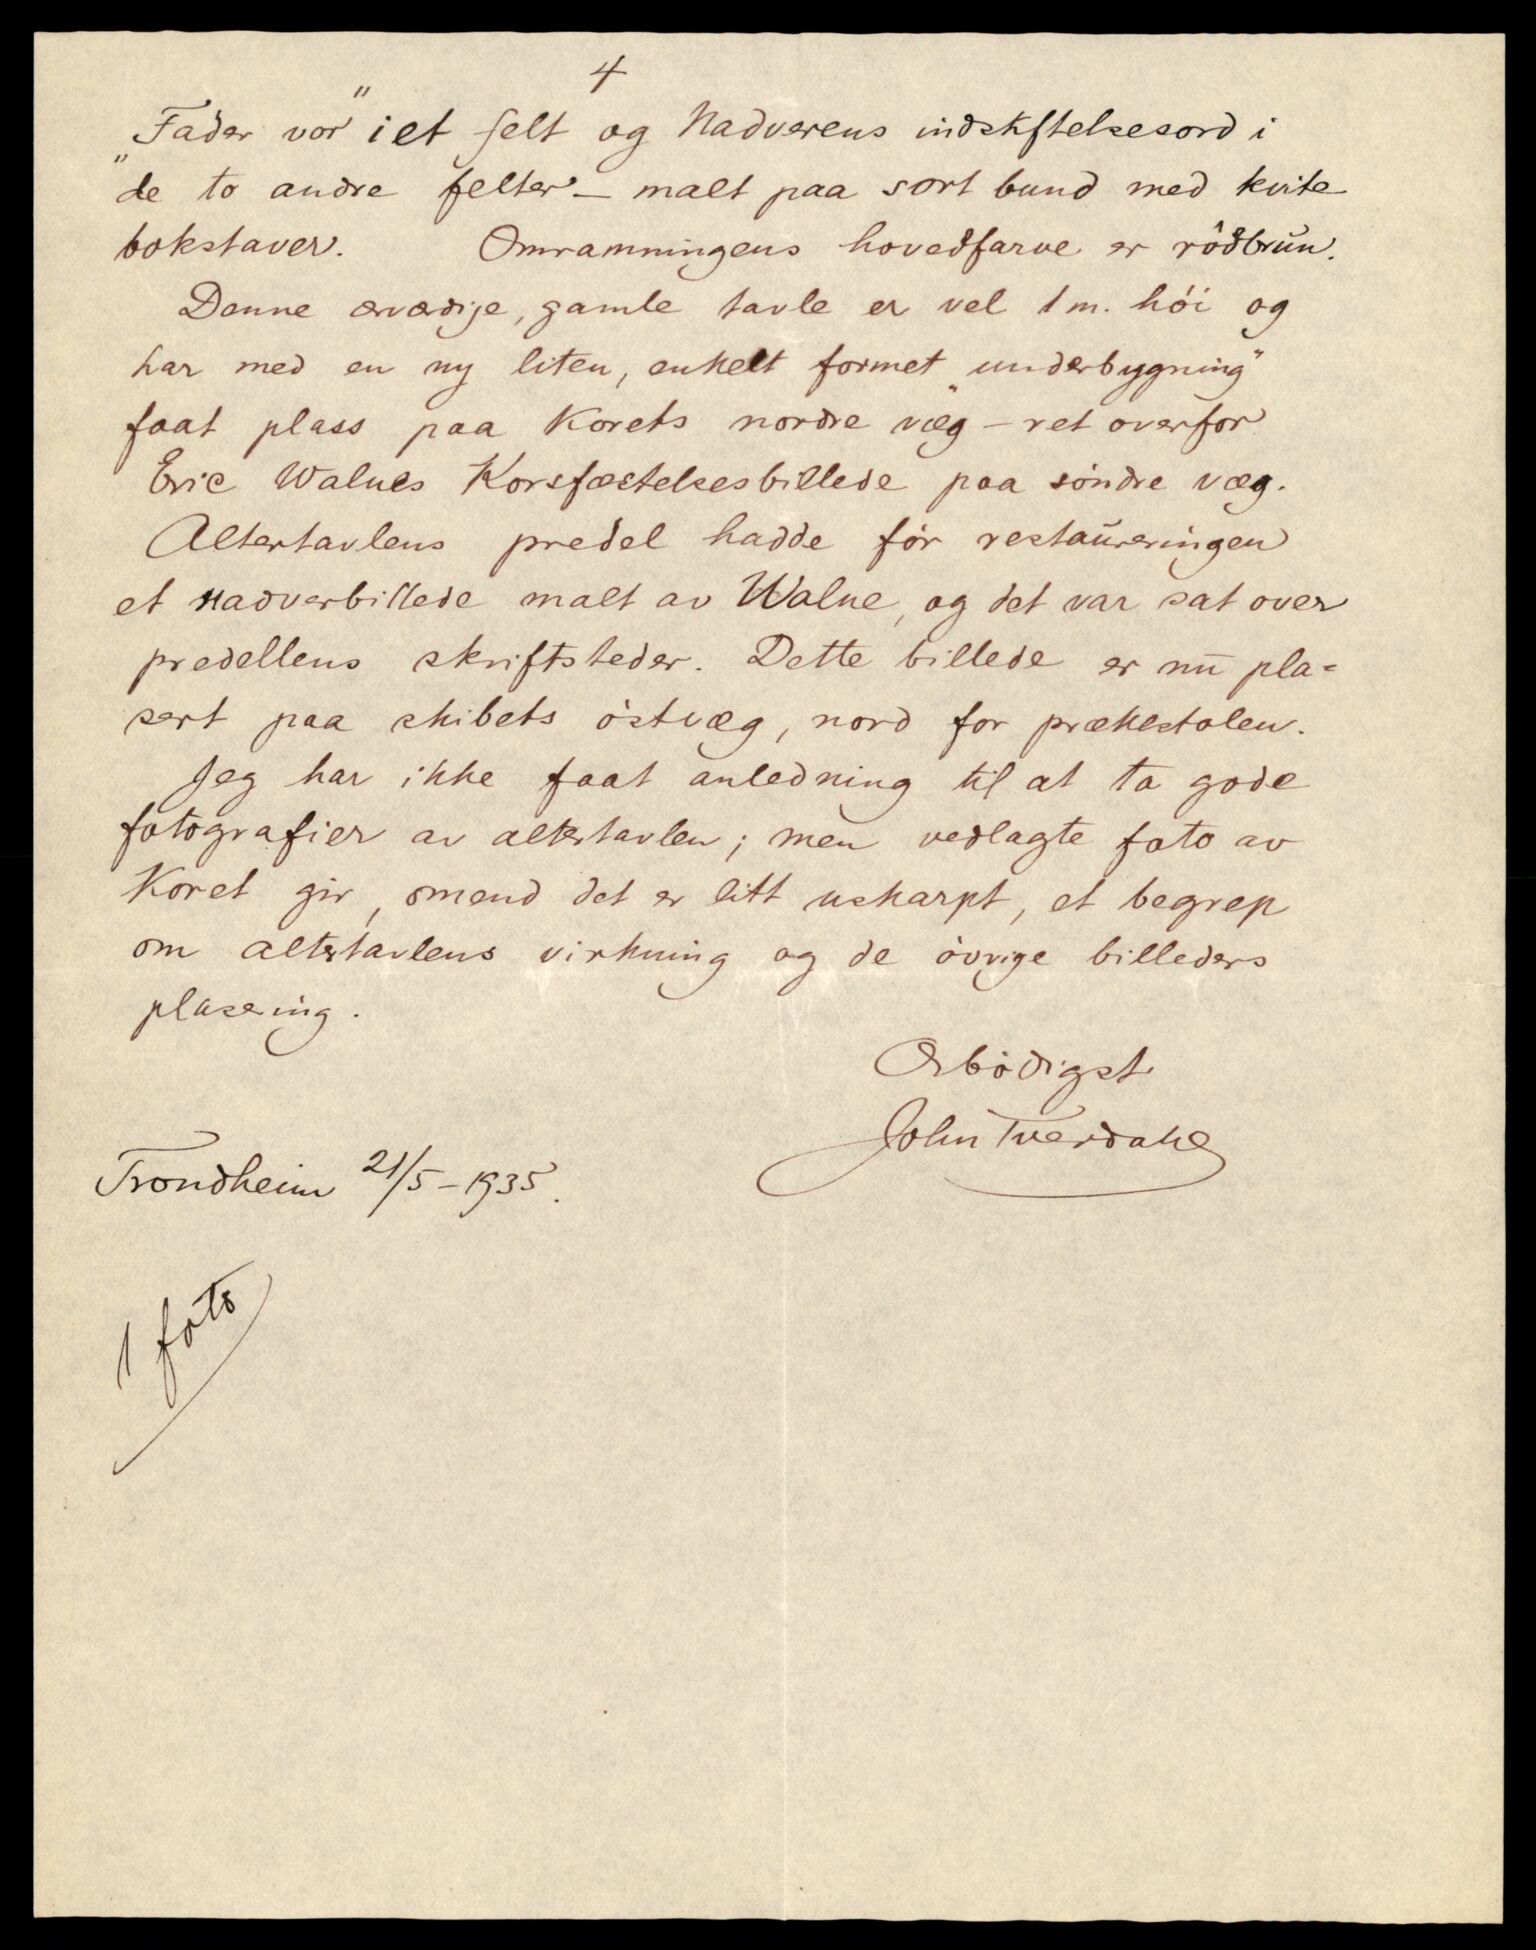 4
„Fader vor" i et felt og Nadverens indskftelsesord i
de to andre felter – malt paa sort bund med kvite
bokstaver. Omramningens hovedfarve er rödbrun.
Denne ærværdige, gamle tavle er vel 1 m. hói og
har med en ny liten, enkelt formet „underbygning"
faat plass paa Korets nordre væg – ret overfor
Eric Walnes Korsfæstelsesbillede paa söndre væg.
Altertavlens predel hadde fór restaureringen
et nadverbillede malt av Walne, og det var sat over
predellens skriftsteder. Dette billede er nu pla=
sert paa skibets óstvæg, nord for prækestolen.
Jeg har ikke faat anledning til at ta gode
fotografier av altertavlen; men vedlagte foto av
Koret gir, omend det er litt uskarpt, et begrep
om altertavlens virkning og de óvrige billeders
plasering.
Ærbódigst
John Tverdahl
Trondheim 21/5 – 1935.
1 foto